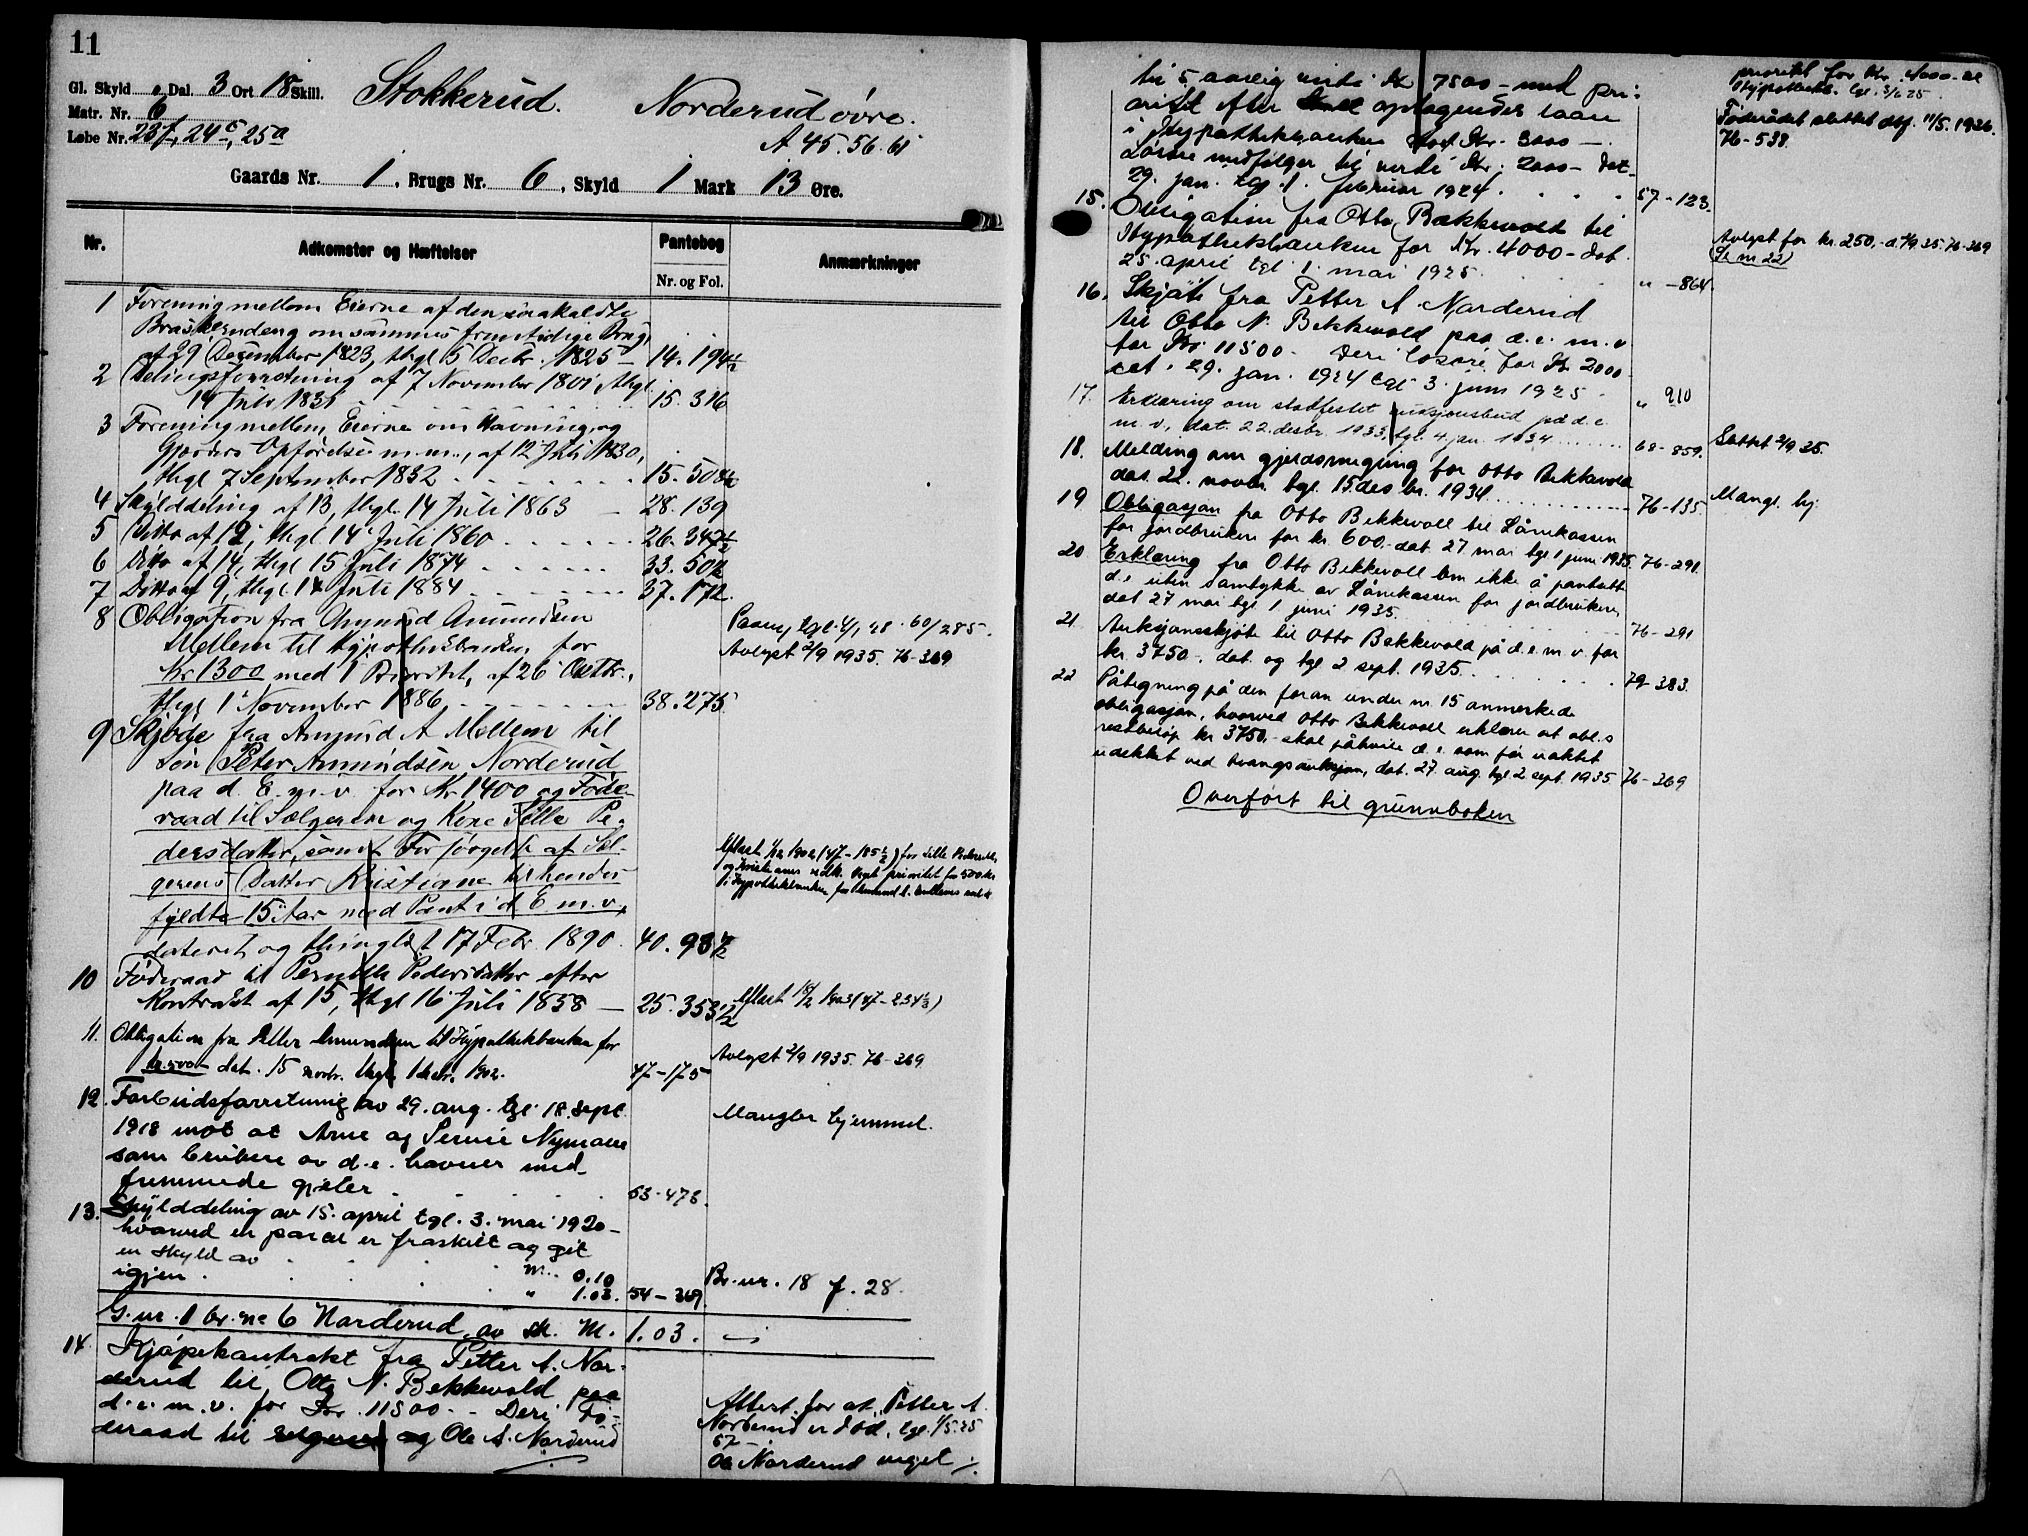 11
Gl. Skyld " Dal. 3 Ort 18 Skill.
Matr. Nr. 6
Løbe Nr. 23f, 24c, 25a
Stokkerud. Norderud øvre.
A 45. 56. 61
Gaards Nr. 1, Brugs Nr. 6, Skyld 1 Mark 13 Øre.
Nr. Adkomster og Hæftelser Pantebog Anmærkninger
Nr. og Fol.
1 Forening mellem Eierne af den saakaldte
om sammes fremtidige Brug,
af 29 December 1823, thgl 5 Decbr. 1825 14. 194½
2 Delingsforretning af 7 November 1801, thgl.
14 Juli 1831 15. 316
3 Forening mellem Eierne om Havning, og
Gjærders Opførelse m.m., af 12 Juli 1830,
thgl 7 September 1832 15. 508½
4 Skylddeling af 13, thgl. 14 Juli 1863 28. 139
5 Ditto af 12, thgl 14 Juli 1860 26. 347½
6 Ditto af 14, thgl 15 Juli 1874 33. 502
7 Ditto af 9, thgl. 14 Juli 1884 37. 172.
8 Obligation fra Amund Amundsen
Mellem til Hypothekbanken for
Kr 1300 med 1 Prioritet, af 26 Octbr.,
thgl 1 November 1886 38. 275.
Avlyst 2/9 1935. 76-369
9 Skjøde fra Amund A Mellem til
Søn Peter Amundsen Norderud
paa d. E. m. v. for Kr 1400 og Føde-
raad til Sælgeren og Kone Sille Pe-
dersdatter, samt Forsørgelse af Sæl-
gerens Datter Kristiane til hendes
fyldte 15 Aar med Pant i d. E. m. v.,
dateret og thinglæst 17 Febr. 1890. 40. 93½
10 Føderaad til Pernille Pedersdatter efter
Kontrakt af 15, thgl 16 Juli 1858 25. 353½
Aflæst 18/2 1903 (47-234½)
11. Obligation fra Petter Amundsen til Hypothekbanken for
kr. 500 dat. 15 novbr. thgl. 1 decbr. 1902. 47-175
Avlyst 2/9 1935. 76-369
12. Forbudsforretning av 29. aug. tgl. 18. sept.
1918 mot at Arne og Nymoen
som brukere av d. e. havner med
fremmede gjeter 53-473.
Mangler hjemmel.
13. Skylddeling av 15. april tgl. 3. mai 1920
hvorved en parcel er fraskilt og git
en skyld av M. 0.10
igjen " 1.03. 54-369.
Br. nr. 18 f. 28.
G. nr. 1 br. nr 6 Norderud av sk. M. 1.03.
14. Kjøpekontrakt fra Petter A. Nor-
derud til Otto N. Bekkevold paa
d. e. m. v. for Kr. 11500.- Deri Fø-
deraad til selgeren og Ole A. Norderud
Attest for at Petter A.
Norderud er død, tgl. 1/5.25
57-
Ole Norderud
til 5 aarlig verdi Kr 7500 - med pri-
oritet efter optagendes laan
i Hypothekbanken stort Kr. 3000 -
Løsøre medfølger til verdi Kr. 2000 - dat
29. jan. tgl. 1. februar 1924. 57-123.
prioritet for Kr. 4000 til
Hypothekb. tgl. 3/6 25.
Føderådet slettet 11/5. 1936.
76-538.
15. Obligation fra Otto Bækkevold til
Hypothekbanken for Kr. 4000 - dat.
25. april tgl. 1. mai 1925. " -864.
Avlyst for kr. 250,- d. 2/9 35. 76-369
(Se nr 22)
16. Skjøte fra Petter A. Norderud
til Otto N. Bekkevold paa d. e. m. v
for Kr. 11500.- Deri løsøre for Kr 2000
dat. 29. jan. 1924 tgl. 3. juni 1925 " 910
17. Erklæring om stadfestet auksjonsbud på d. e.
m. v., dat. 22. desbr. 1933, tgl. 4. jan. 1934 68-859.
Slettet 2/9 35.
18. Melding om gjerdsvegring for Otto Bekkevold
dat. 22. novbr. tgl. 15 des br. 1934 76-135.
Mangl. hj.
19 Obligasjon fra Otto Bekkevoll til Lånekassen
for jordbrukere for kr. 600,- dat. 27 mai tgl 1 juni 1935. 76-291.
20 Erklæring fra Otto Bekkevoll om ikke å pantsette
d. e. uten samtykke av Lånekassen for jordbrukere,
dat 27 mai tgl 1 juni 1935. 76-291
21 Auksjonsskjøte til Otto Bekkevold på d. e. m. v. for
kr. 3750.-, dat. og tgl. 2 sept. 1935. 79-383.
22 Påtegning på den foran under nr. 15 anmerkede
obligasjon, hvorved Otto Bekkevoll erklærer at obl.s
restbeløp kr 3750,- skal påhvile d. e. som før uaktet
udekket ved tvangsauksjon, dat. 27 aug. tgl 2 sept. 1935 76-369
Overført til grunnboken